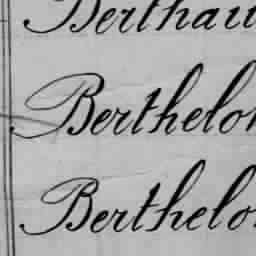 Berthau
Berthelo
Berthelo